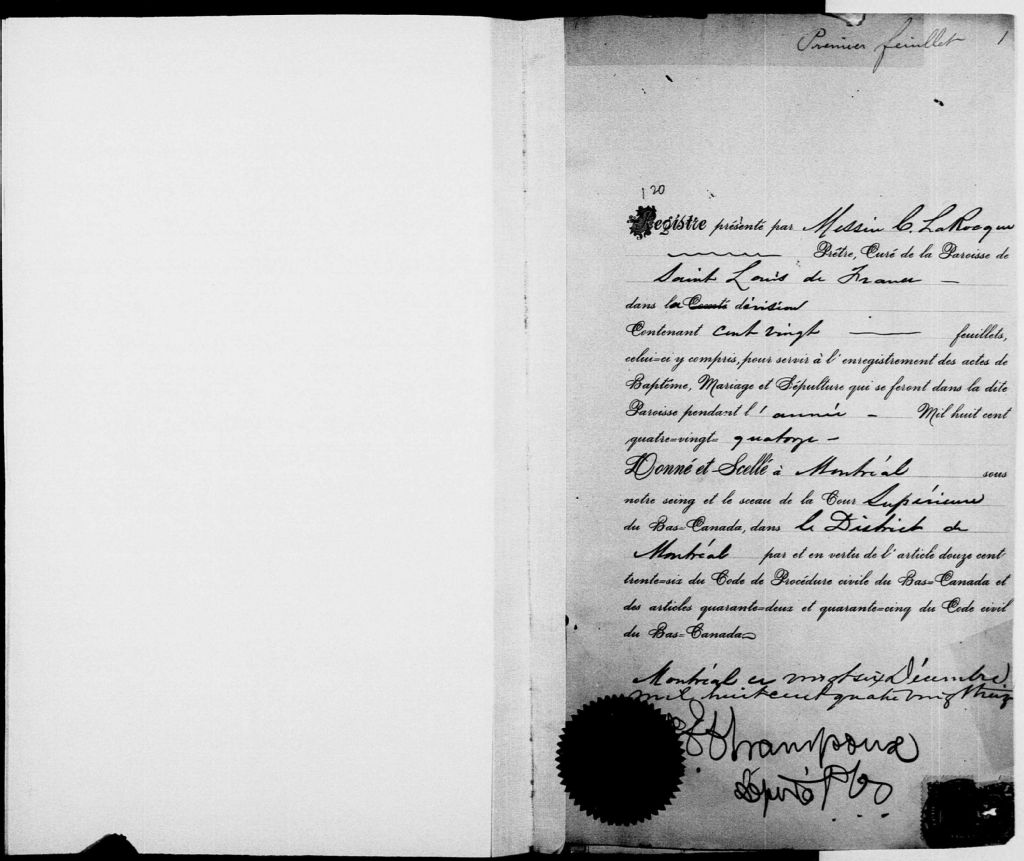 Premier feuillet 1
120
Registre présenté par Messire C. LaRocque
Prêtre, Curé de la Paroisse de
Saint Louis de France —
dans la Comté division
Contenant cent vingt — feuillets,
celui=ci y compris, pour servir à l'enregistrement des actes de
Baptême, Mariage et Sépulture qui se feront dans la dite
Paroisse pendant l'année — Mil huit cent
quatre=vingt= quatorze —
Donné et Scellé à Montréal sous
notre seing et le sceau de la Cour Supérieure
du Bas=Canada, dans le District de
Montréal par et en vertu de l'article douze cent
trente=six du Code de Procédure civile du Bas=Canada et
des articles quarante=deux et quarante=cinq du Code civil
du Bas=Canada
Montréal ce vingt six Décembre
mil huit cent quatre vingt treiz
Champoux
Député